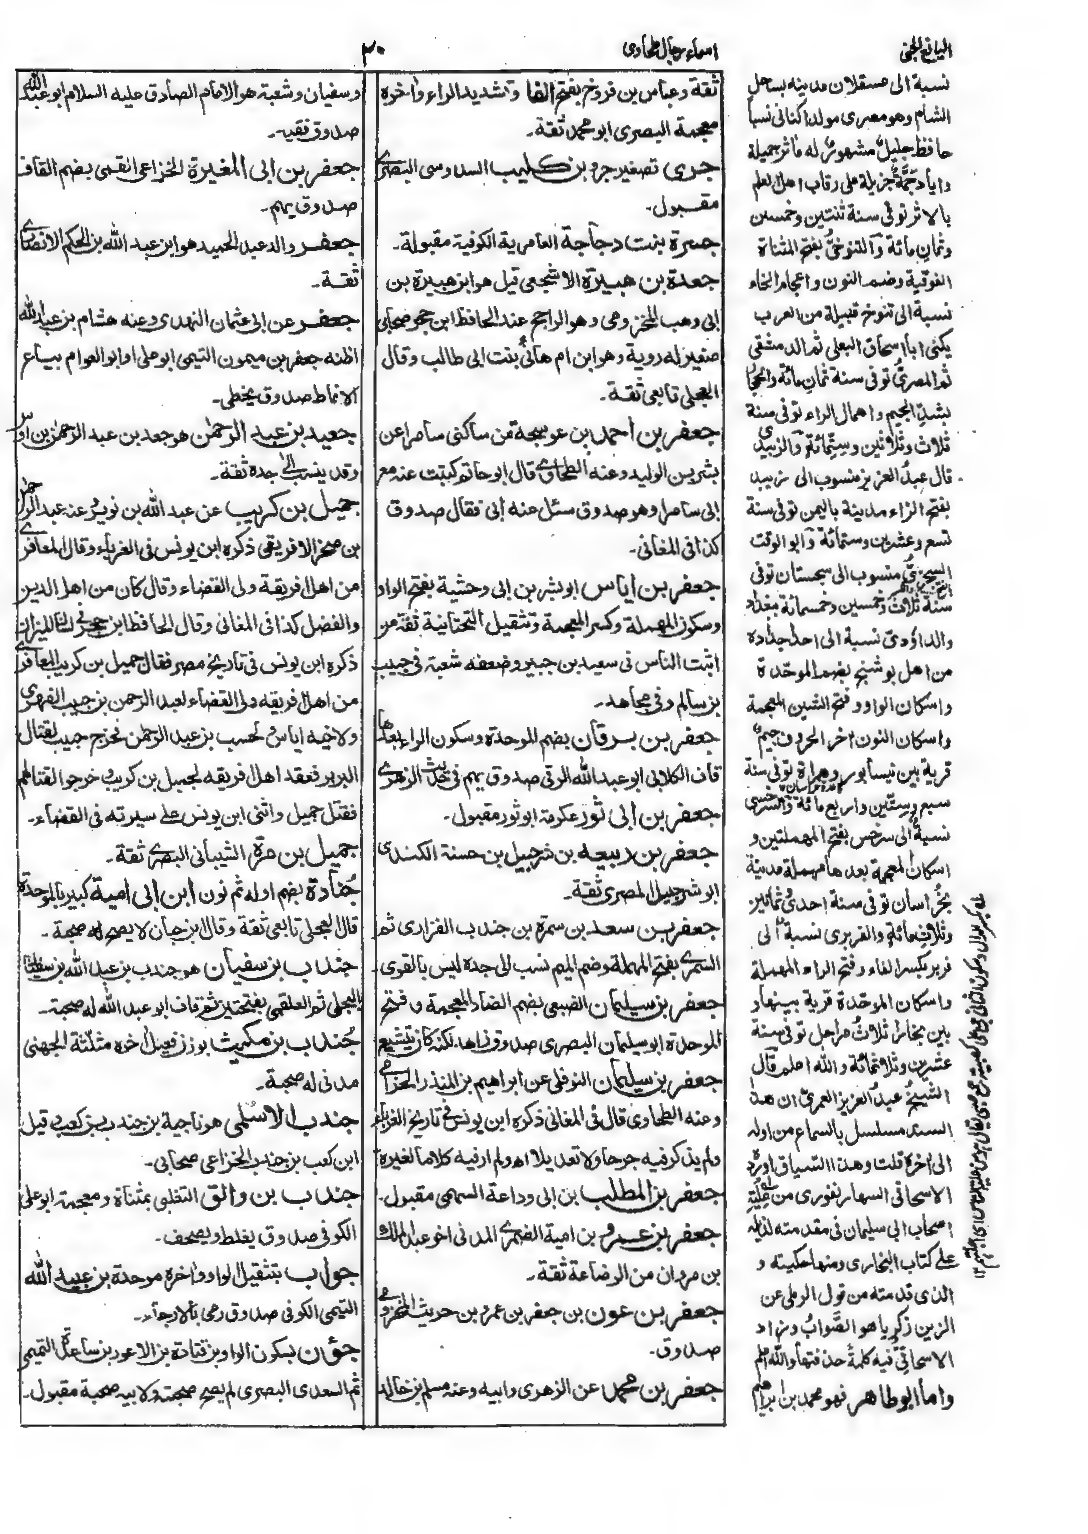 اليانع الجني
اسماء رجال طحاوی
۳۰
ثقة وعباس بن فروخ بفتح الفا وتشديد الراء وأخره
معجمة البصرى ابو محمد ثقة۔
جرى تصغير جرو بن كليب السدوسى البصرى
مقبول۔
جسرة بنت دجاجة العامرية الكوفية مقبولة۔
جعدة بن هبيرة الاشجعى قيل هو ابن هبيرة بن
ابى وهب المخزومى وهو الراجح عند الحافظ ابن حجر صحابى
صغير له روية وهو ابن ام هانئ بنت ابى طالب وقال
العجلى تابعى ثقة۔
جعفر بن احمد بن عوسجة من ساكنى سامرا عن
بشر بن الوليد وعنه الطحاوى قال ابو حاتم كتبت عنه مع
ابى سامرا وهو صدوق سئل عنه ابى فقال صدوق
كذا فى المغانى۔
جعفر بن اياس ابو بشر بن ابى وحشية بفتح الواو
وسكون المهملة وكسر المعجمة وتثقيل التحتانية ثقة من
اثبت الناس فى سعيد بن جبير وضعفه شعبة فى حبيب
بن سالم وفى مجاهد۔
جعفر بن برقان بضم الموحدة وسكون الراء بعدها
قاف الكلابى ابو عبد الله الرقى صدوق يهم فى حديث الزهرى
جعفر بن ابى ثور عكرمة ابو ثور مقبول۔
جعفر بن ربيعه بن شرحبيل بن حسنة الكندى
ابو شرحبيل المصرى ثقة۔
جعفر بن سعد بن سمرة بن جندب الفزارى ثم
السمرى بفتح المهملة وضم الميم نسب الى جده ليس بالقوى
جعفر بن سليمان الضبعى بضم الضاد المعجمة وفتح
الموحدة ابو سليمان البصرى صدوق زاهد لكنه كان يتشيع
جعفر بن سليمان النوفلى عن ابراهيم بن المنذر الحزامى
وعنه الطحاوى قال فى المغانى ذكره ابن يونس فى تاريخ الغرباء
ولم يذكر فيه جرحا ولا تعديلا اه ولم ار فيه كلاما لغيره
جعفر بن المطلب بن ابى وداعة السهمى مقبول۔
جعفر بن عمرو بن امية الضمرى المدنى اخو عبد الملك
بن مروان من الرضاعة ثقة۔
جعفر بن عون بن جعفر بن عمرو بن حريث المخزومى
صدوق۔
جعفر بن محمد عن الزهرى وابيه وعنه مسلم بن خالد
وسفيان وشعبة هو الامام الصادق عليه السلام ابو عبد الله
صدوق فقيه۔
جعفر بن ابى المغيرة الخزاعى القمى بضم القاف
صدوق يهم۔
جعفر والد عبد الحميد هو ابن عبد الله بن الحكم الانصارى
ثقة۔
جعفر عن ابى عثمان النهدى وعنه هشام بن عبد الله
اظنه جعفر بن ميمون التيمى ابو على او ابو العوام بياع
الانماط صدوق يخطى۔
جعيد بن عبد الرحمن هو جعد بن عبد الرحمن بن اوس
وقد ينسب الى جده ثقة۔
جميل بن كريب عن عبد الله بن نوير عنه عبد الرحمن
بن صخر الافريقى ذكره ابن يونس فى الغرباء وقال المعافرى
من اهل افريقة ولى القضاء وقال كان من اهل الدين
والفضل كذا فى المغانى وقال الحافظ ابن حجر فى لسان الميزان
ذكره ابن يونس فى تاريخ مصر فقال جميل بن كريب المعافرى
من اهل افريقه ولى القضاء لعبد الرحمن بن حبيب الفهرى
ولاخيه اياس ثم لحبيب بن عبد الرحمن فخرج حبيب لقتال
البربر فعقد اهل افريقه لجميل بن كريب خرجوا لقتالهم
فقتل جميل واثنى ابن يونس على سيرته فى القضاء۔
جميل بن مرة الشيبانى البصرى ثقة۔
جُنادة بضم اوله ثم نون ابن ابى امية كبير بالموحدة
قال العجلى تابعى ثقة وقال ابن حبان لا يصح له صحبة۔
جندب بن سفيان هو جندب بن عبد الله بن سفيان
البجلى ثم العلقى بفتحتين ثم قاف ابو عبد الله له صحبة۔
جُندب بن مكيث بوزن فعيل اخره مثلثة الجهنى
مدنى له صحبة۔
جندب الاسلمى هو ناجية بن جندب بن كعب قيل
ابن كعب بن جندب الخزاعى صحابى۔
جندب بن والق التغلبى بمثناة ومعجمة ابو على
الكوفى صدوق يغلط ويصحف۔
جواب بتثقيل الواو واخره موحدة بن عبيد الله
التيمى الكوفى صدوق رمى بالارجاء۔
جؤن بسكون الواو بن قتادة بن الاعور بن ساعدة التميمى
ثم السعدى البصرى لم يصح صحبته ولابيه صحبة مقبول۔
نسبة الى عسقلان مدينه بساحل
الشام وهو مصرى مولدا كنانى نسبا
حافظ جليل مشهور له مآثر جميلة
واياد جمّة جزيلة على رقاب اهل العلم
بالاثر توفى سنة ثنتين وخمسين
وثمان مائة والتنوخى بفتح المثناة
الفوقية وضم النون واعجام الخاء
نسبة الى تنوخ قبيلة من العرب
يكنى ابا اسحاق البعلى ثم الدمشقى
ثم المصرى توفى سنة ثمان مائة والحجار
بشد الجيم واهمال الراء توفى سنة
ثلاث وثلاثين وستمائة والزبيدى
قال عبد العزيز منسوب الى زبيد
بفتح الزاء مدينة باليمن توفى سنة
تسع وعشرين وستمائة وابو الوقت
السجزى منسوب الى سجستان توفى
سنة ثلاث وخمسين وخمسمائة ببغداد
والداؤدى نسبة الى احد اجداده
من اهل بوشنج بضم الموحدة
واسكان الواو وفتح الشين المعجمة
واسكان النون اخر الحروف جيم
قرية بين نيسابور وهراة توفى سنة
سبع وستين واربع مائة والسرخسى
نسبة الى سرخس بفتح المهملتين و
اسكان المعجمة بعدها مهملة مدينة
بخراسان توفى سنة احدى ثمانين
وثلاث مائة والفربرى نسبة الى
فربر بكسر الفاء وفتح الراء المهملة
واسكان الموحدة قرية بينها و
بين بخارا ثلاث مراحل توفى سنة
عشرين وثلاثمائة والله اعلم قال
الشيخ عبد العزيز العمرى ان هذا
السند مسلسل بالسماع من اوله
الى اخره قلت وهذا السياق اورده
الاسحاقى السهارنفورى من علية
اصحاب ابى سليمان فى مقدمته لذيله
على كتاب البخارى ومنها حكيته و
الذى قدمته من قول الرملى عن
الزين زكريا هو الصواب وزاد
الاسحاقى فيه كلمة حذفتها والله اعلم
واما ابو طاهر فهو محمد بن ابراهيم